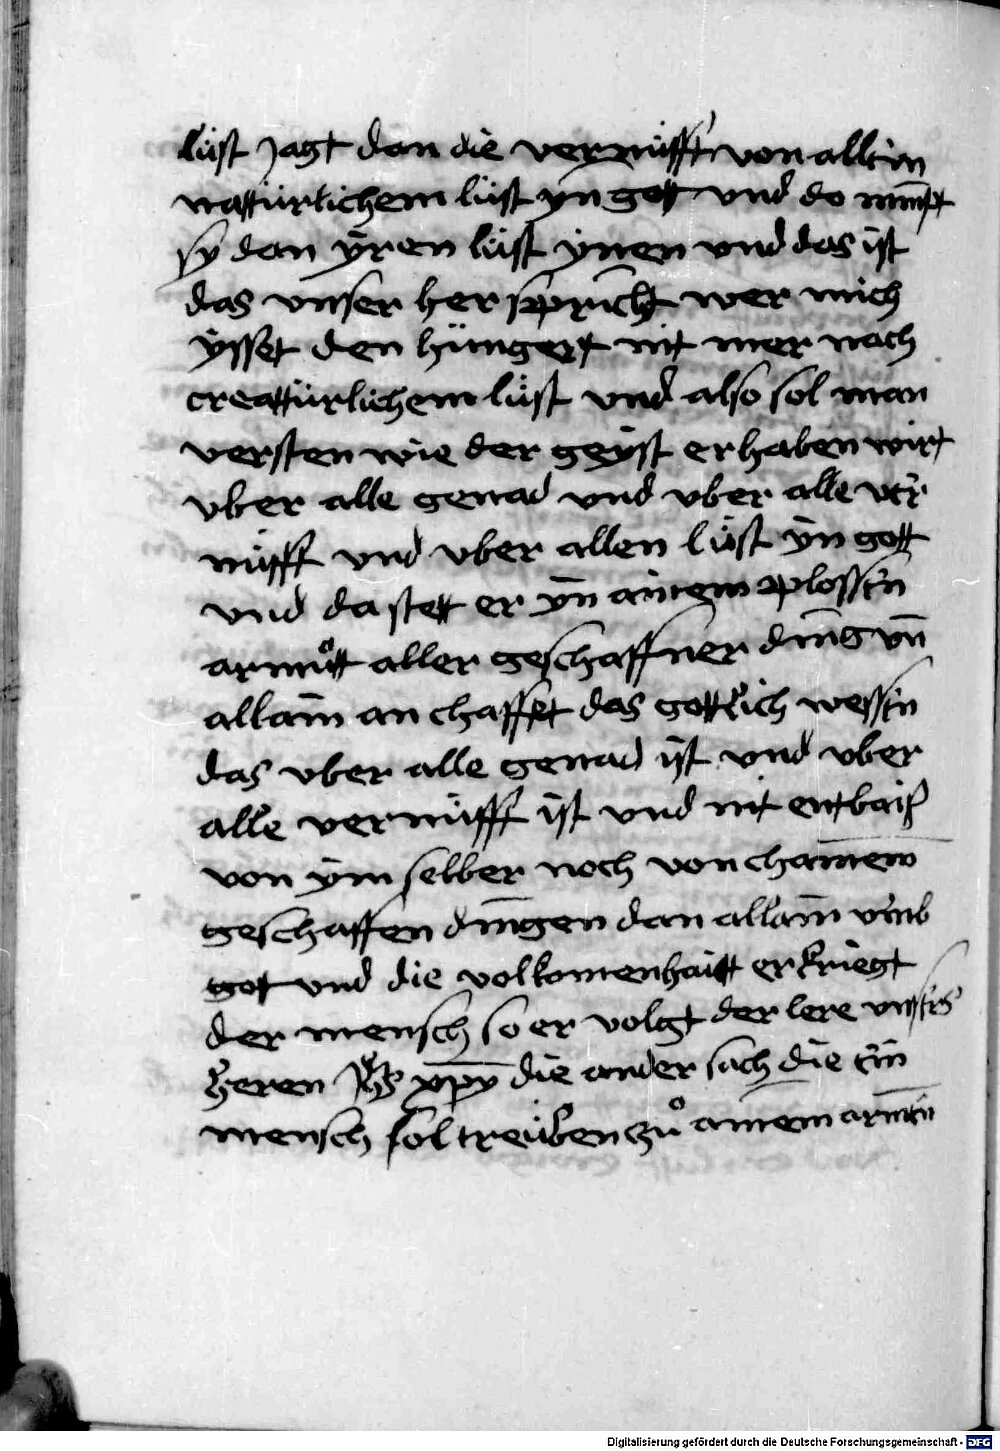 lüst Jagt dan die vernüfft von allem
nattürlichem lüst yn gott und do nimpt
sy dan yren lüst ynen vnd das ist
das vnser her spricht wer mich
ysset den hüngert nit mer nach
creattürlichem lüst vnd also sol man
versten wie der geyst erhaben wirt
vber alle genad vnd vber alle ver
nüfft vnd vber allen lüst yn gott
vnd da stett er yn ainem plossen
armůtt aller geschaffner ding vn̄
allain an chaffet das gottlich wessen
das vber alle genad ist vnd vber
alle vernüfft ist vnd nit
von ym selber noch von chainem
geschaffen dingen dan allain vmb
got vnd die volkomenhaitt erkriegt
der mensch so er volgt der lere vnsers
heren Jhs xpy die ander sach die ein
mensch sol treiben zů ainem armen
Digitalisierung gefördert durch die Deutsche Forschungsgemeinschaft - DFG